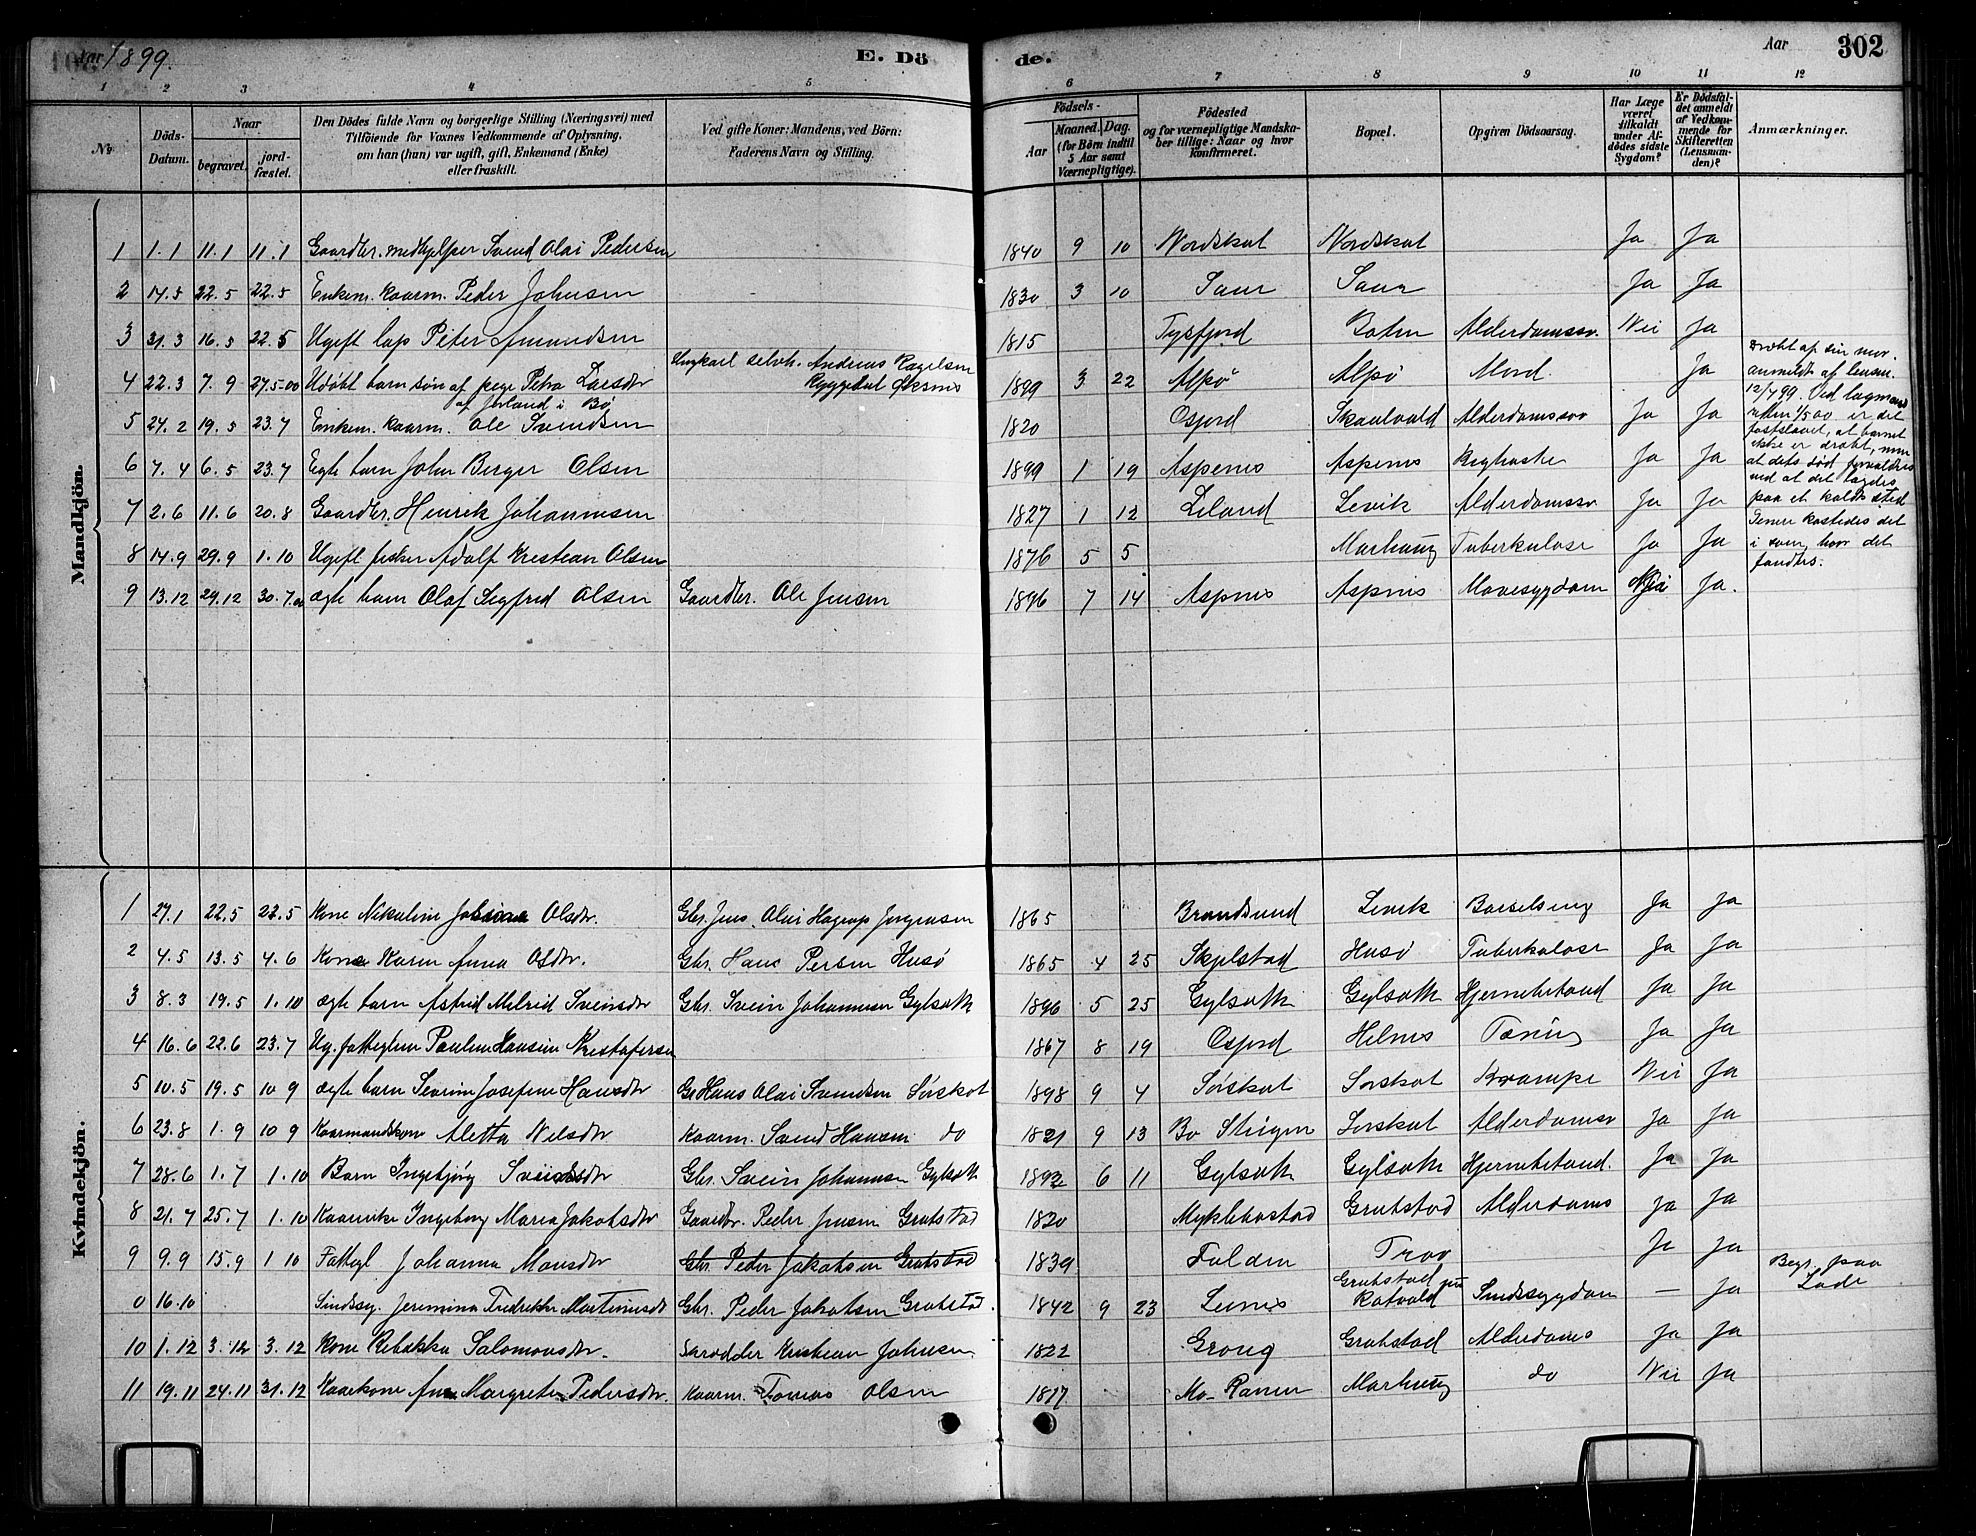 Aar 1899.
E. Döde.
Aar 302
1 2 3 4 5 6 7 8 9 10 11 12
No
Döds-Datum.
Naar
begravet.
jord-fæstet.
Den Dödes fulde Navn og borgerlige Stilling (Næringsvei) med
Tilföiende for Voxnes Vedkommende af Oplysning,
om han (hun) var ugift, gift, Enkemand (Enke)
eller fraskilt.
Ved gifte Koner: Mandens, ved Börn:
Faderens Navn og Stilling.
Födsels-
Aar
Maaned. Dag.
(for Börn indtil
5 Aar samt
Værnepligtige).
Födested
og for værnepligtige Mandska-
ber tillige: Naar og hvor
konfirmeret.
Bopæl.
Opgiven Dödsaarsag.
Har Læge
været
tilkaldt
under Af-
dödes sidste
Sygdom?
Er Dödsfal-
det anmeldt
af Vedkom-
mende for
Skifteretten
(Lensman-
den)?
Anmærkninger.
Mandkjön.
1 1.1 11.1 11.1 Gaardbr. medhjelper Svend Olai Pedersen 1840 9 10 Nordskot Nordskot Ja Ja
2 14.5 22.5 22.5 Enkem. kaarm. Peder Johnsen 1830 3 10 Saur Saur Ja Ja
3 31.3 16.5 22.5 Ugift lap Peter Amundsen 1815 Tysfjord Boten Alderdomssv. Nei Ja
4 22.3 7.9 27.5-00 Udøbt barn søn af pige Petra Larsdtr Ungkarl selveh. Andreas Kagelsen 1899 3 22 Alpø Alpø Mord. Ja
af Jørland i Bø Ryggedal Øksnes
5 24.2 19.5 23.7 Enkem. kaarm. Ole Svendsen 1820 Osfjord Skaalvold Alderdomssv Ja Ja
6 7.4 6.5 23.7 Egte barn John Berger Olsen 1899 1 19 Aspenes Aspenes Kighoste Ja Ja
7 2.6 11.6 20.8 Gaardbr. Henrik Johannesen 1827 1 12 Leland Levik Alderdomssv Ja Ja
8 14.9 29.9 1.10 Ugift fisker Adolf Kristean Olsen 1876 5 5 Marhaug Tuberkulose Ja Ja
9 13.12 29.12 30.7.00 ægte barn Olaf Sigfred Olsen Gaardbr. Ole Jensen 1896 7 14 Aspnes Aspnes Mavesygdom Nei Ja.
Dræbt af sin mor.
anmeldt af lensm.
12/4 99. Ved lagmands
retten 1/5 00 er det
fastslaaet, at barnet
ikke er dræbt, men
at dets død forvoldtes
ved at det lagdes
paa et koldt sted
Senere kastedes det
i søen, hvor det
fandtes.
Kvindekjön.
1 27.1 22.5 22.5 Kone Nikoline Olsdtr. Gbr. Jens Olai Hagrup Jørgensen 1865 Brandsund Levik Barselseng Ja Ja
2 4.5 13.5 4.6 Kone Karen Anna Olsdtr. Gbr. Hans Persen Husø 1865 4 25 Skjelstad Husø Tuberkulose Ja Ja
3 8.3 19.5 1.10 ægte barn Astrid Melrid Sveinsdtr Gbr. Svein Johannesen Gylseth 1896 5 25 Gylseth Gylseth Hjernebetænd Ja Ja
4 16.6 22.6 23.7 Ug. fattiglem Pauline Hansine Kristofersen 1867 8 19 Osfjord Helnes Tæring Ja Ja
5 10.5 19.5 10 9 ægte barn Severine Josefine Hansdtr Gb Hans Olai Svendsen Sørskot 1898 9 4 Sørskot Sørskot Krampe Nei Ja
6 23.8 1.9 10 9 Kaarmandskone Aletta Nilsdtr Kaarm. Svend Hansen do 1821 9 13 Bø Steigen Sørskot Alderdomsv Ja Ja
7 28.6 1.7 1.10 Barn Ingebjørg Sveinsdtr Gbr. Svein Johannsen Gylseth 1892 6 11 Gylseth Gylseth Hjernebetænd. Ja Ja
8 21.7 25.7 1.10 Kaarenke Ingeborg Maria Jakobsdtr Gaardbr. Peder Jensen Grøtstad 1820 Myklebostad Grøtstad Alderdoms Ja Ja
9 9.9 15.9 1 10 Fattigl Johanna Monsdtr Gbr. Peder Jakobsen Grøtstad 1839 Folden Trøv Ja Ja
0 16.10 Sindssy. Jeremina Fredrikke Martinusdtr Gbr. Peder Jakobsen Grøtstad. 1842 9 23 Leines Grøtstad Rotvold Sindssygdom — Ja Begr. paa Lade
10 1.12 3.12 3.12 Kone Rebekka Salomonsdtr. Kristian Johnsen 1822 Grong Grøtstad Alderdoms Ja Ja
11 19.11 24.11 31.12 Kaarkone Ane Margrete Pedersdtr. Kaarm. Tomas Olsen 1817. Mo-Ranen Marhaug do Nei Ja